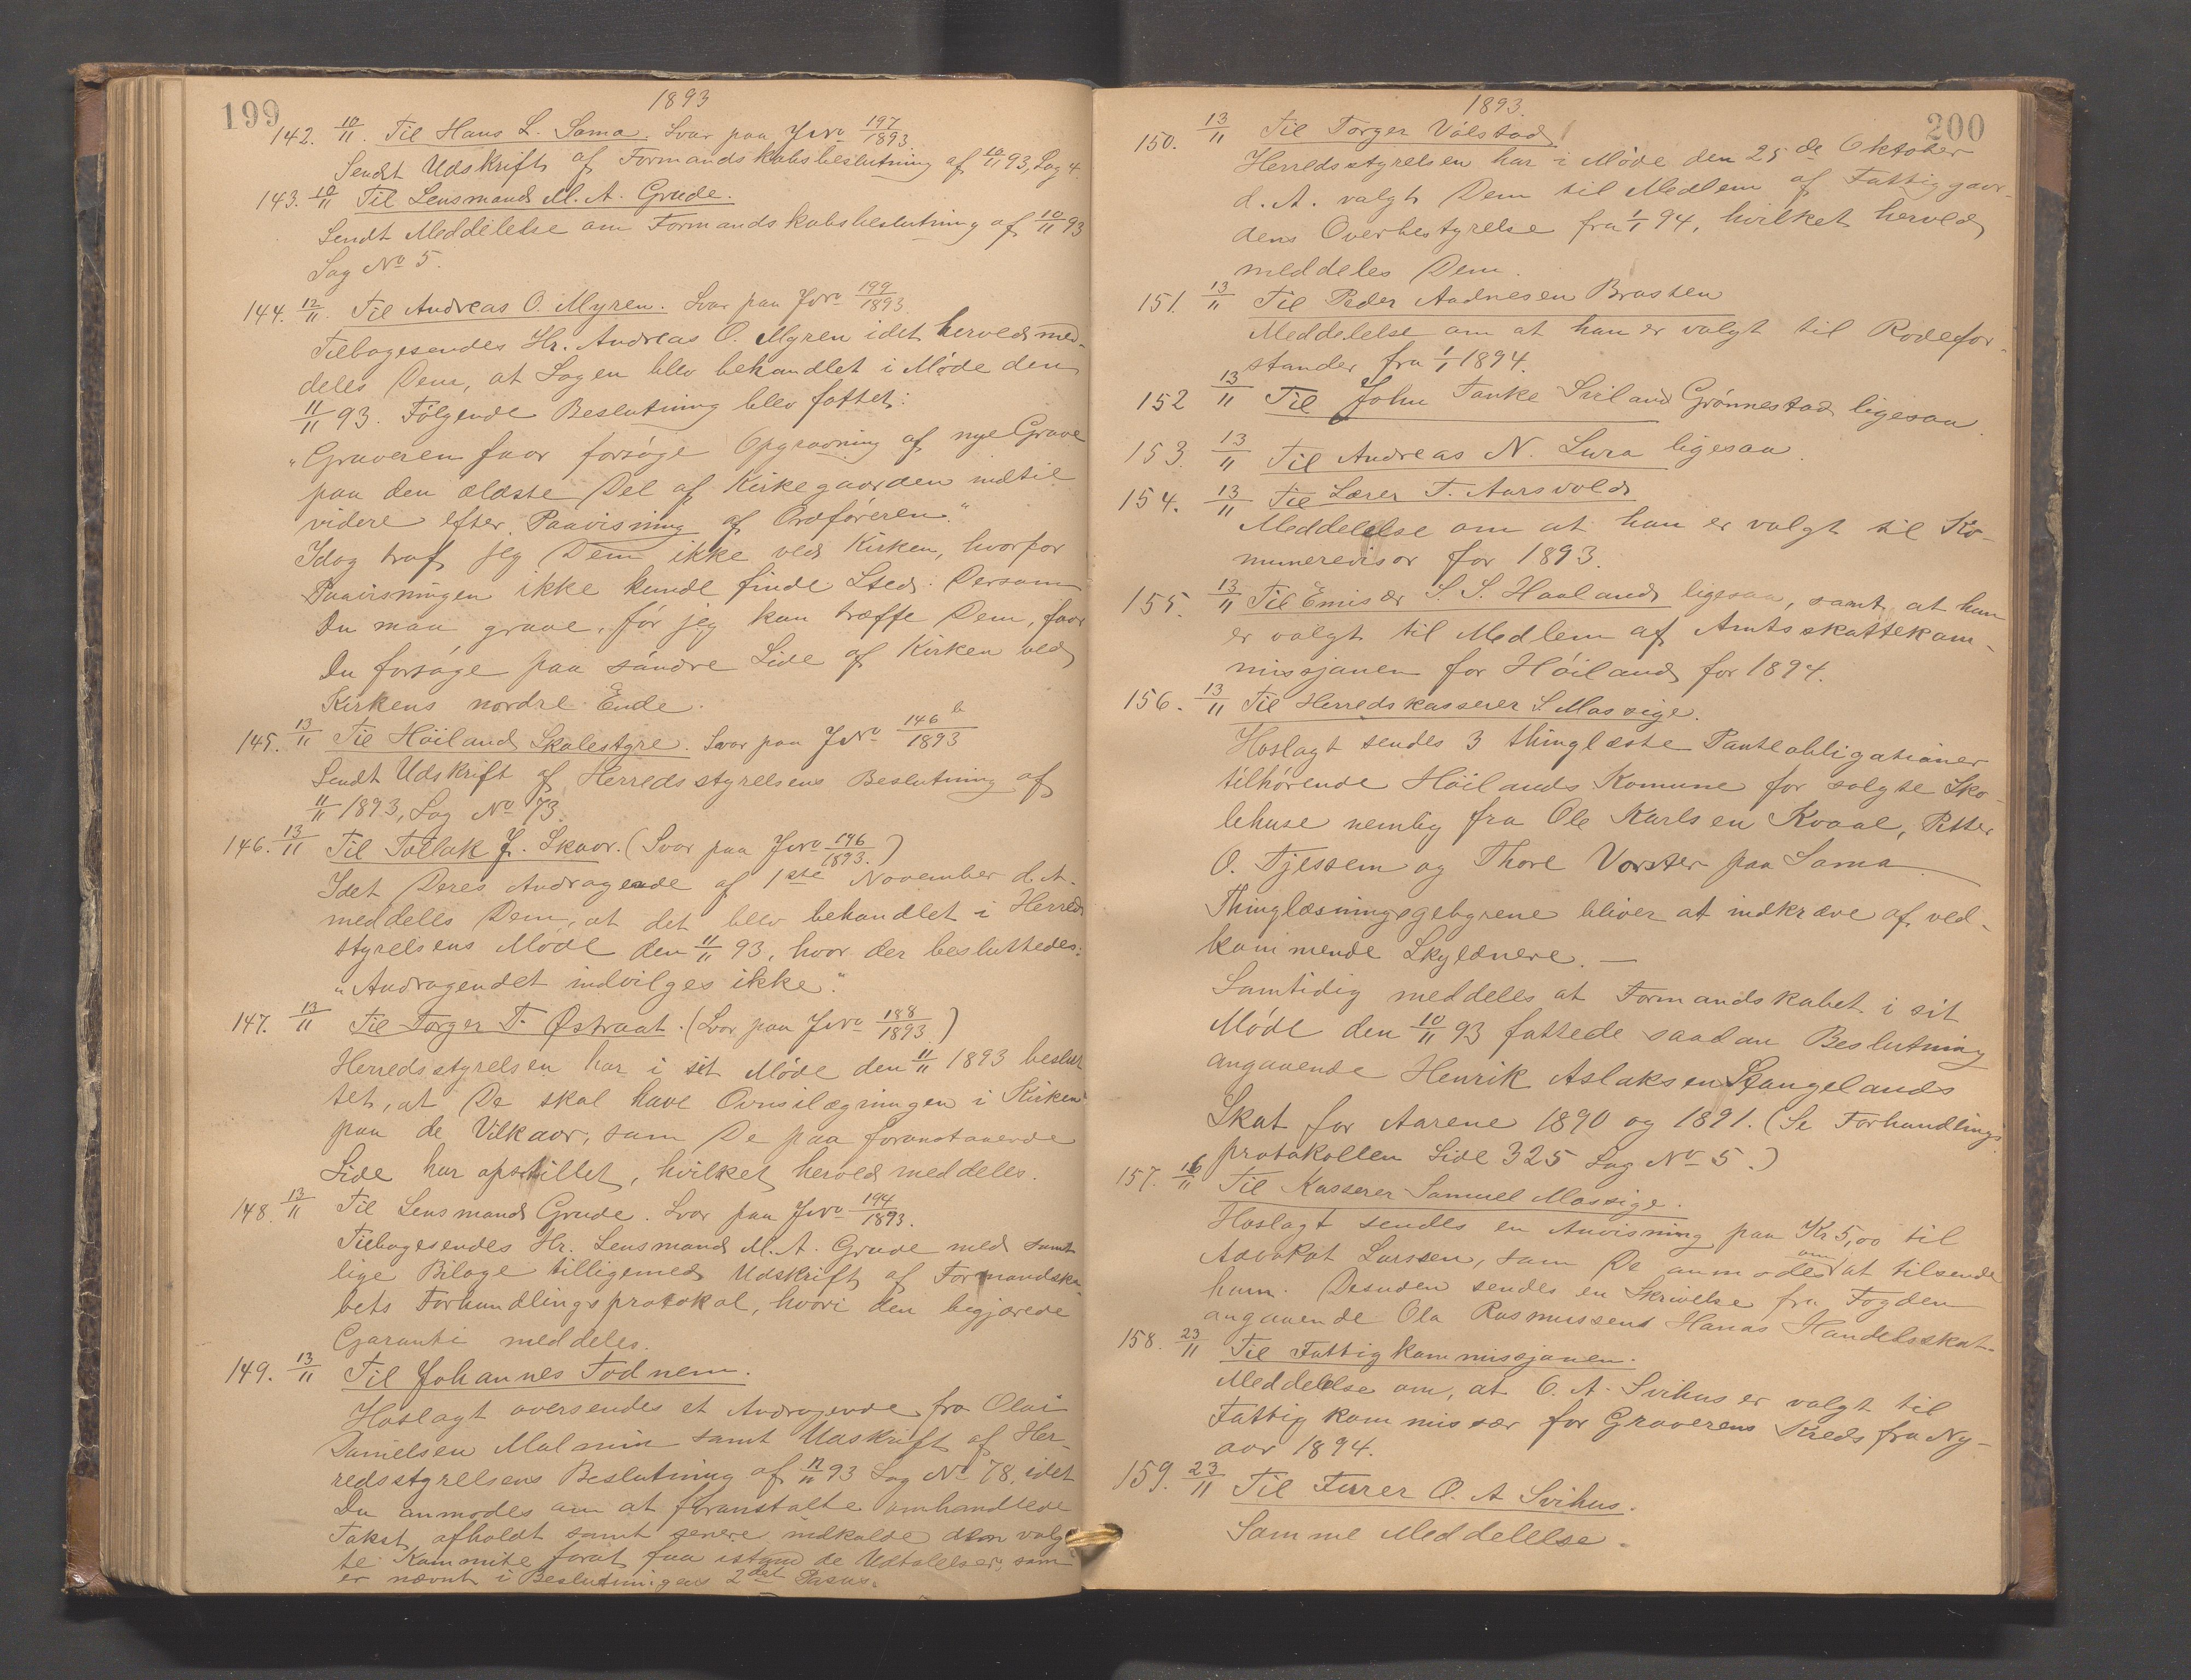 199
1893
142. 10/11. Til Hans L. Soma. Svar paa Jno 197/1893.
Sendt Udskrift af Formandskabsbeslutning af 10/11 93, Sag 4.
143. 10/11 Til Lensmand M. A. Grude.
Sendt Meddelelse om Formandskabsbeslutning af 10/11 93
Sag No 5.
144. 12/11. Til Andreas O. Myren. Svar paa Jno 199/1893.
Tilbagesendes Hr. Andreas O. Myren idet herved med-
deles Dem, at Sagen blev behandlet i Møde den
11/11 93. Følgende Beslutning blev fattet:
"Graveren faar forsøge Opgravning af nye Grave
paa den ældste Del af Kirkegaarden indtil
videre efter Paavisning af Ordføreren."
Idag traf jeg Dem ikke ved Kirken, hvorfor
Paavisningen ikke kunde finde Sted. Dersom
Du maa grave, før jeg kan træffe Dem, faar
Du forsøge paa søndre Side af Kirken ved
Kirkens nordre Ende.
145. 13/11 Til Höiland Skolestyre. Svar paa JNo 146 b/1893
Sendt Udskrift af Herredsstyrelsens Beslutning af
11/11 1893, Sag No 73.
146. 13/11 Til Tollak J. Skaar. (Svar paa Jno 196/1893.)
Idet Deres Andragende af 1ste November d. A.
meddeles Dem, at det blev behandlet i Herreds
styrelsens Møde den 11/11 93, hvor der besluttedes:
"Andragendet indvilges ikke."
147. 13/11 Til Torger T. Østraat. (Svar paa Jno 188/1893.)
Herredsstyrelsen har i sit Møde den 11/11 1893 beslut
tet, at De skal have Ovnsilægningen i Kirken
paa de Vilkaar, som De paa foranstaaende
Side har opstillet, hvilket herved meddeles.
148. 13/11 Til Lensmand Grude. Svar paa Jno 194/1893.
Tilbagesendes Hr. Lensmand M. A. Grude med samt
lige Bilage tilligemed Udskrift af Formandska-
bets Forhandlingsprotokol, hvori den begjærede
Garanti meddeles.
149. 13/11 Til Johannes Todnem.
Hoslagt oversendes et Andragende fra Olai
Danielsen Malmin samt Udskrift af Her-
redsstyrelsens Beslutning af 11/11 93 Sag No 78, idet
Du anmodes om at foranstalte omhandlede
Takst afholdt samt senere indkalde den valg
te Kommite forat faa istand de Udtalelser, som
er nævnt i Beslutningens 2det Passus.
200
1893.
150. 13/11 Til Torger Válstad
Herredsstyrelsen har i Møde den 25de Oktober
d. A. valgt Dem til Medlem af Fattiggaar-
dens Overbestyrelse fra 1/1 94, hvilket herved
meddeles Dem.
151. 13/11 Til Peder Aadnesen Brasten
Meddelelse om at han er valgt til Rodefor-
stander fra 1/1 1894.
152 13/11 Til John Tanke Sviland Grønnestad ligesaa.
153. 13/11 Til Andreas N. Lura ligesaa.
154. 13/11 Til Lærer T. Aarsvold
Meddelelse om at han er valgt til Ko-
munerevisor for 1893.
155. 13/11 Til Emisær S. S. Haaland ligesaa, samt at han
er valgt til Medlem af Amtsskattekom-
missjonen for Höiland for 1894.
156. 13/11 Til Herredskasserer S Massige.
Hoslagt sendes 3 thinglæste Panteobligationer
tilhørende Höilands Komune for solgte Sko-
lehuse nemlig fra Ole Karlsen Kvaal, Petter
O. Tjessem og Thore Vorster paa Soma.
Thinglæsningsgebyrene bliver at indkræve af ved-
kommende Skyldnere. —
Samtidig meddeles at Formandskabet i sit
Møde den 10/11 93 fattede saadan Beslutning
angaaende Henrik Aslaksen Stangelands
Skat for Aarene 1890 og 1891. (Se Forhandlings
protokollen Side 325 Sag No 5.)
157. 16/11 Til Kasserer Samuel Massige.
Hoslagt sendes en Anvisning paa Kr 5,00 til
Advokat Larssen, som De anmodes om at tilsende
ham. Desuden sendes en Skrivelse fra Fogden
angaaende Ola Rasmussens Hanas Handelsskat.
158. 23/11 Til Fattigkommissjonen.
Meddelelse om, at O. A. Svihus er valgt til
Fattigkommissær for Graverens Kreds fra Ny-
aar 1894.
159. 23/11 Til Furer O. A Svihus.
Samme Meddelelse.